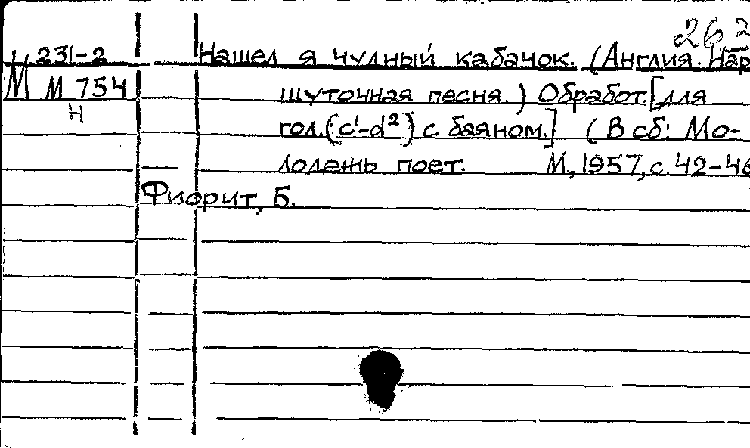 262
М 231-2
М 754
Н
Нашел я чудный кабачок. (Англия. Нар.
шуточная песня.) Обработ. [для
гол. (c¹-d²) с баяном.] (В сб: Мо-
лодежь поет. М, 1957, с. 42-46
Фиорит, Б.